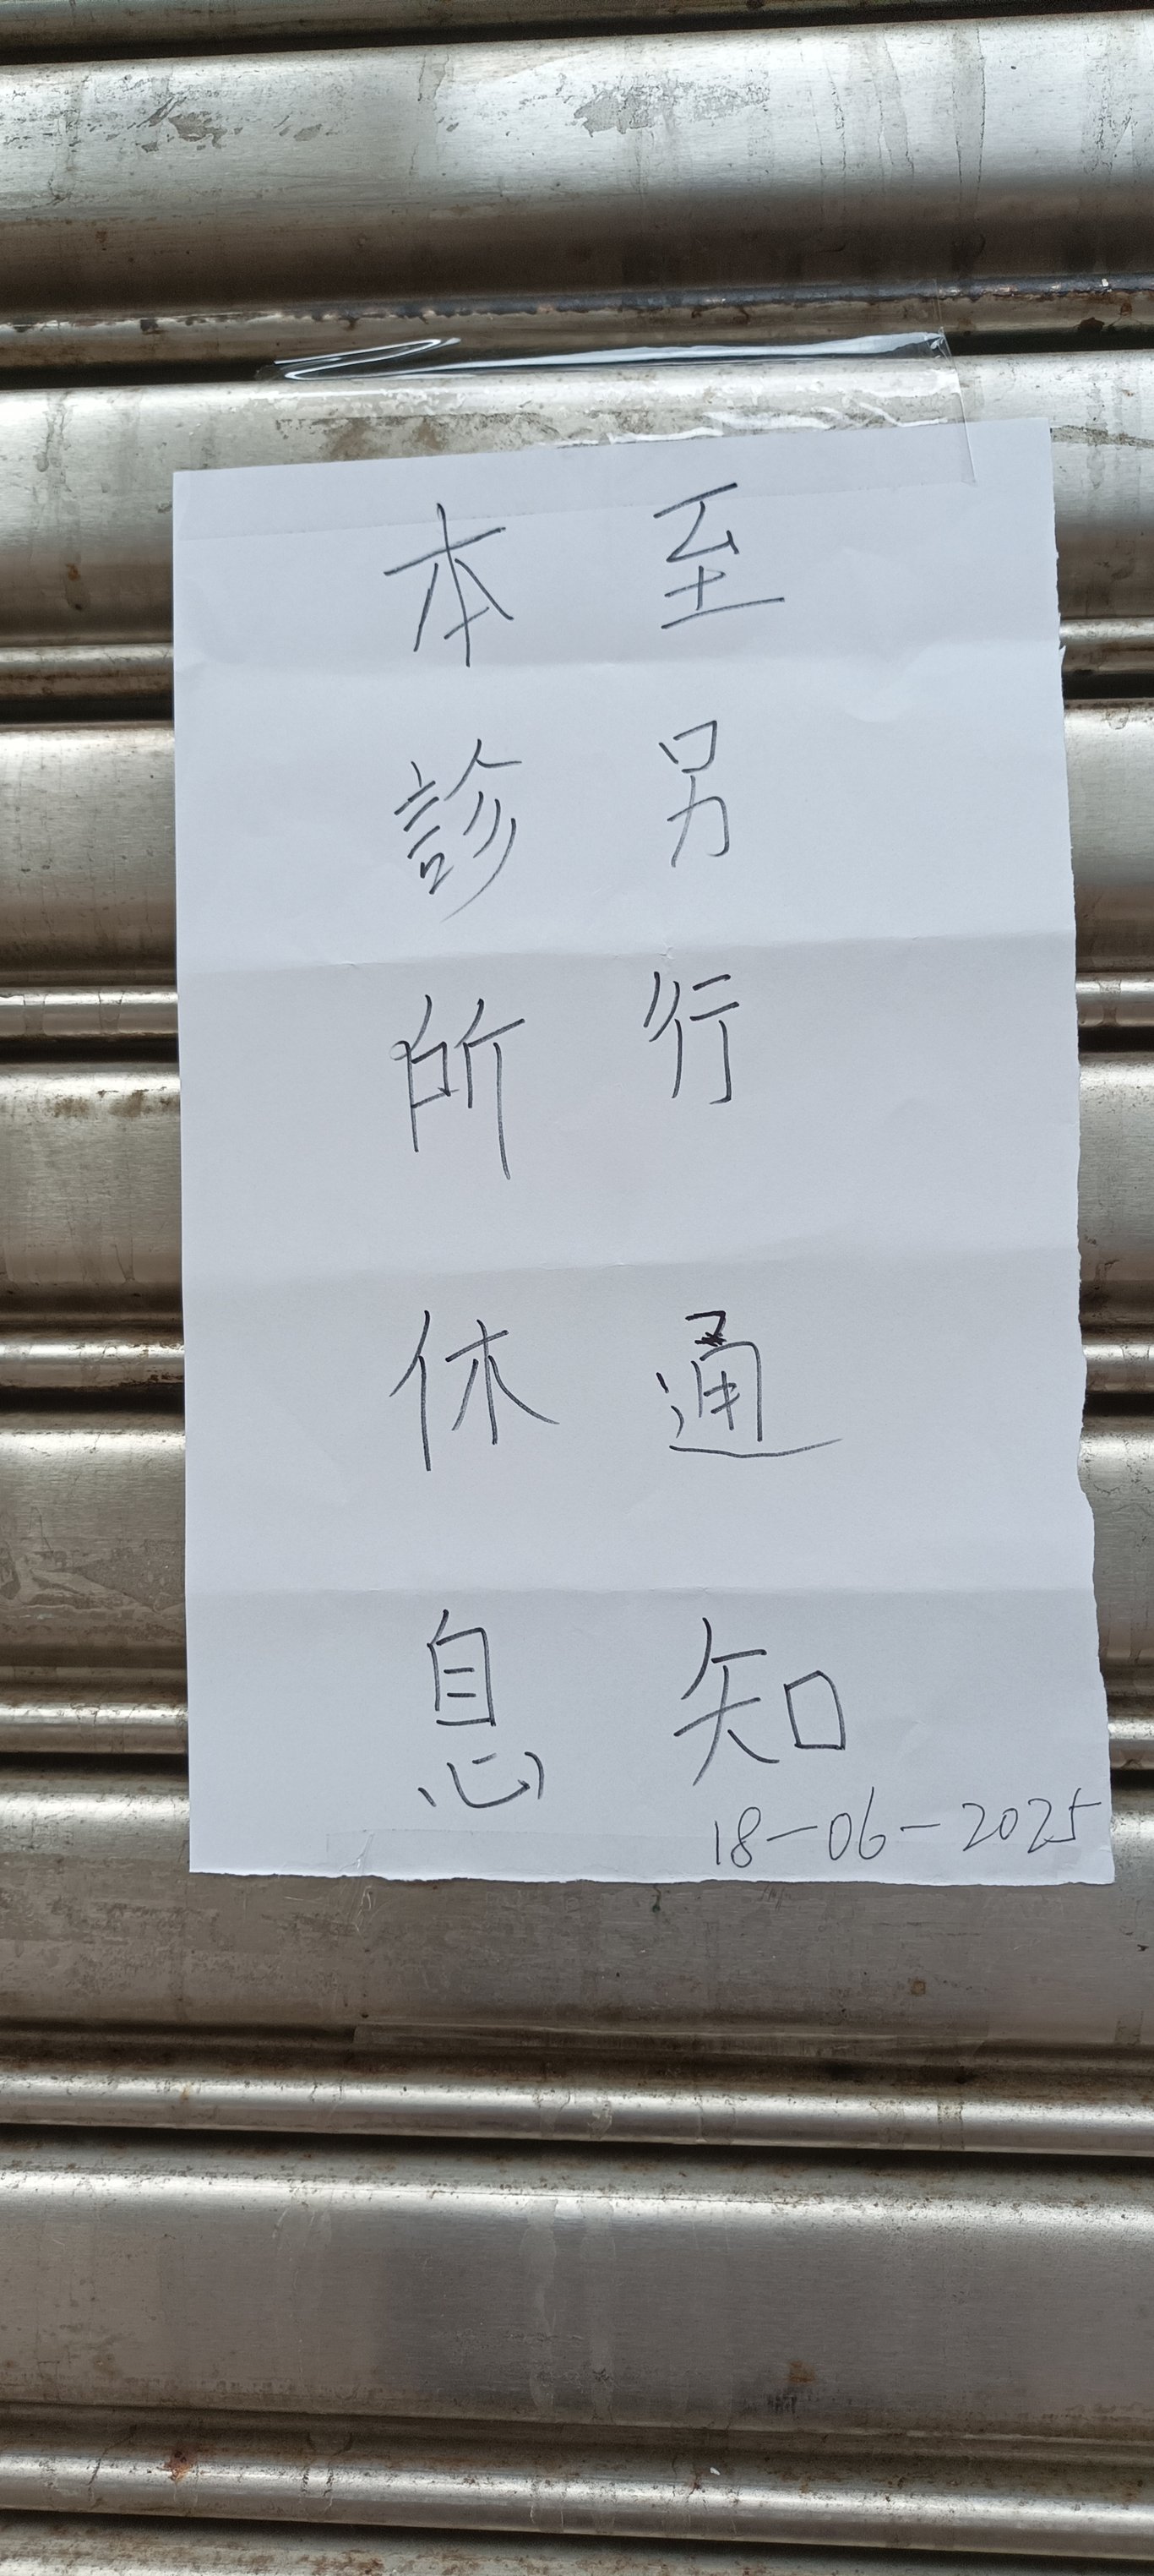 本診所休息
至另行通知
18-06-2025